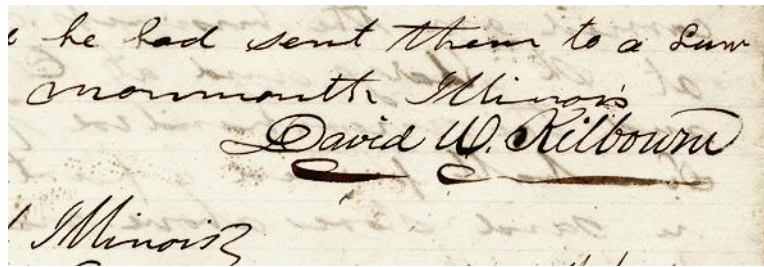 he had sent them to a Law
Monmouth Illinois
David W. Kilbourn
Illinois